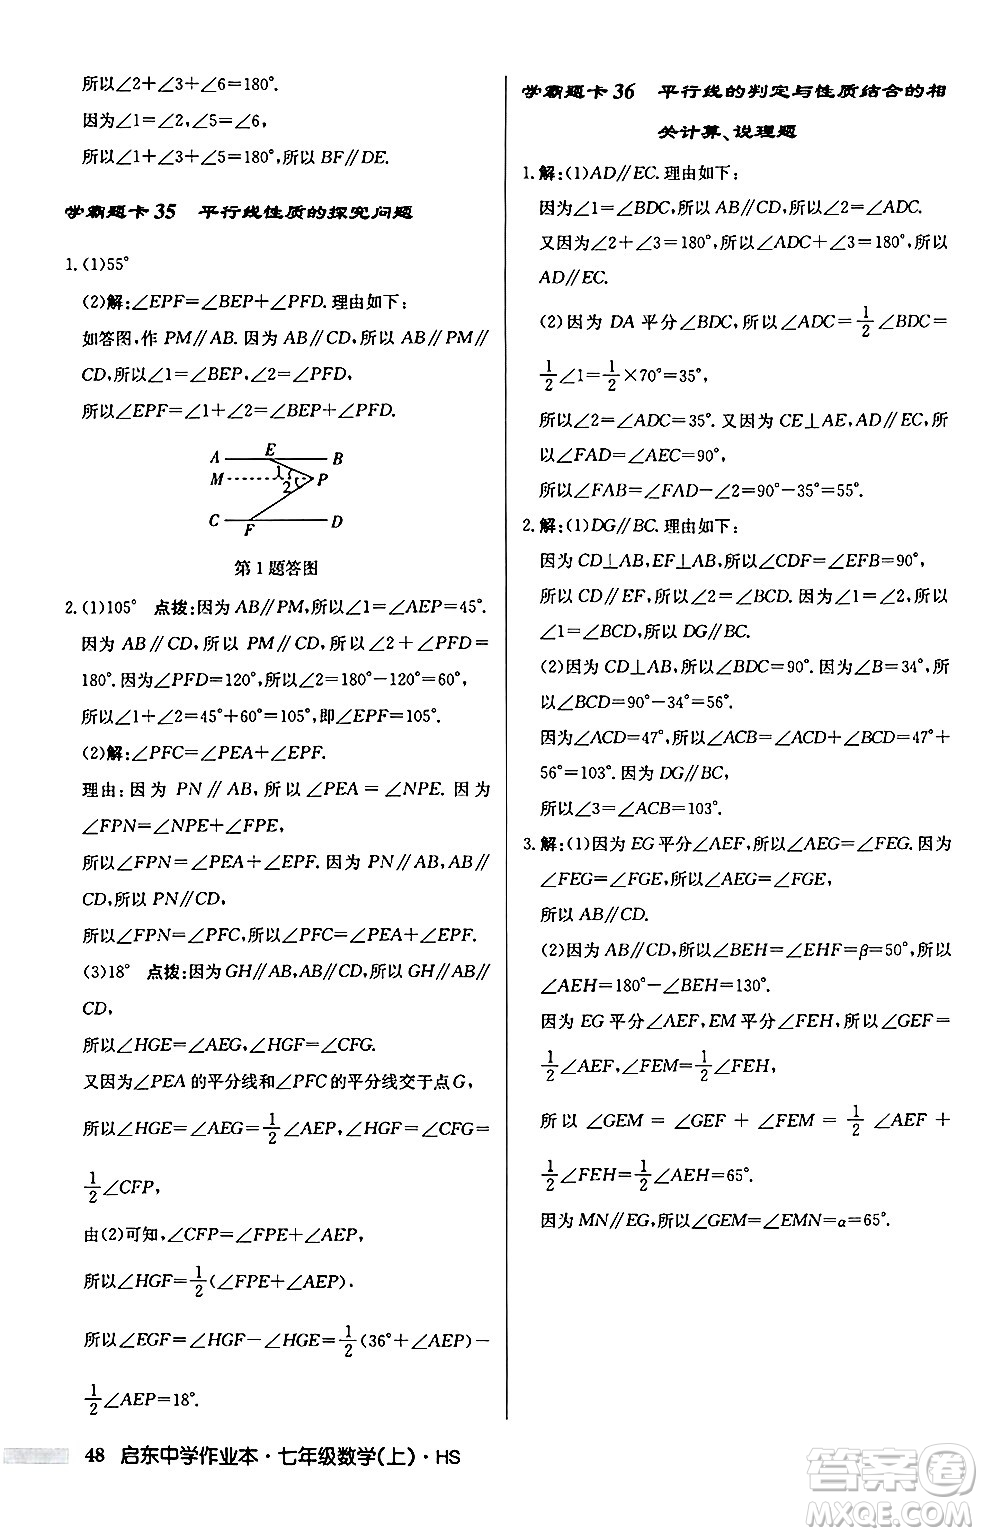 所以∠2+∠3+∠6=180°.
因为∠1+∠2=∠5,∠4=∠6,
所以∠3+∠4+∠5=180°,所以 BF∥DE.
学霸题卡 35 平行线性质的探究问题
1.(1)55°
(2)解:∠EPF=∠BEP+∠PFD.理由如下:
如答图,作 PM∥AB.因为AB∥CD,所以AB∥PM∥
CD,所以∠1=∠BEP,∠2=∠PFD,
所以∠EPF=∠1+∠2=∠BEP+∠PFD.
A E B
M 1 2 P
C F D
第1题答图
2.(1)105° 点拨:因为AB∥PM,所以∠1=∠AEP=45°.
因为 AB∥CD,所以 PM∥CD,所以∠2+∠PFD=
180°.因为∠PFD=120°,所以∠2=180°-120°=60°,
所以∠1+∠2=45°+60°=105°,即∠EPF=105°.
(2)解:∠PFC=∠PEA+∠EPF.
理由:因为 PN∥AB,所以∠PEA=∠NPE.因为
∠FPN=∠NPE+∠FPE,
所以∠FPN=∠PEA+∠EPF.因为 PN∥AB,AB∥
CD,所以 PN∥CD,
所以∠FPN=∠PFC,所以∠PFC=∠PEA+∠EPF.
(3)18° 点拨:因为GH∥AB,AB∥CD,所以GH∥AB∥
CD,
所以∠HGE=∠AEG,∠HGF=∠CFG.
又因为∠PEA的平分线和∠PFC的平分线交于点G,
所以∠HGE=∠AEG=1/2∠AEP,∠HGF=∠CFG=
1/2∠CFP,
由(2)可知,∠CFP=∠FPE+∠AEP,
所以∠HGF=1/2(∠FPE+∠AEP).
所以∠EGF=∠HGF-∠HGE=1/2(36°+∠AEP)-
1/2∠AEP=18°.
学霸题卡 36 平行线的判定与性质结合的相
关计算、说理题
1.解:(1)AD∥EC.理由如下:
因为∠1=∠BDC,所以 AB∥CD,所以∠2=∠ADC.
又因为∠2+∠3=180°,所以∠ADC+∠3=180°,所以
AD∥EC.
(2)因为 DA 平分∠BDC,所以∠ADC=1/2∠BDC=
1/2∠1=1/2×70°=35°,
所以∠2=∠ADC=35°.又因为 CE⊥AE,AD∥EC,所
以∠FAD=∠AEC=90°,
所以∠FAB=∠FAD-∠2=90°-35°=55°.
2.解:(1)DG∥BC.理由如下:
因为CD⊥AB,EF⊥AB,所以∠CDF=∠EFB=90°,
所以CD∥EF,所以∠2=∠BCD.因为∠1=∠2,所以
∠1=∠BCD,所以 DG∥BC.
(2)因为CD⊥AB,所以∠BDC=90°.因为∠B=34°,所
以∠BCD=90°-34°=56°.
因为∠ACD=47°,所以∠ACB=∠ACD+∠BCD=47°+
56°=103°.因为 DG∥BC,
所以∠3=∠ACB=103°.
3.解:(1)因为 EG平分∠AEF,所以∠AEG=∠FEG.因为
∠FEG=∠FGE,所以∠AEG=∠FGE,
所以AB∥CD.
(2)因为 AB∥CD,所以∠BEH=∠EHF=β=50°,所以
∠AEH=180°-∠BEH=130°.
因为 EG平分∠AEF,EM平分∠FEH,所以∠GEF=
1/2∠AEF,∠FEM=1/2∠FEH,
所以 ∠GEM = ∠GEF + ∠FEM = 1/2 ∠AEF +
1/2∠FEH=1/2∠AEH=65°.
因为 MN∥EG,所以∠GEM=∠EMN=α=65°.
48 启东中学作业本·七年级数学(上)·HS
答案圈
MXQE.COM